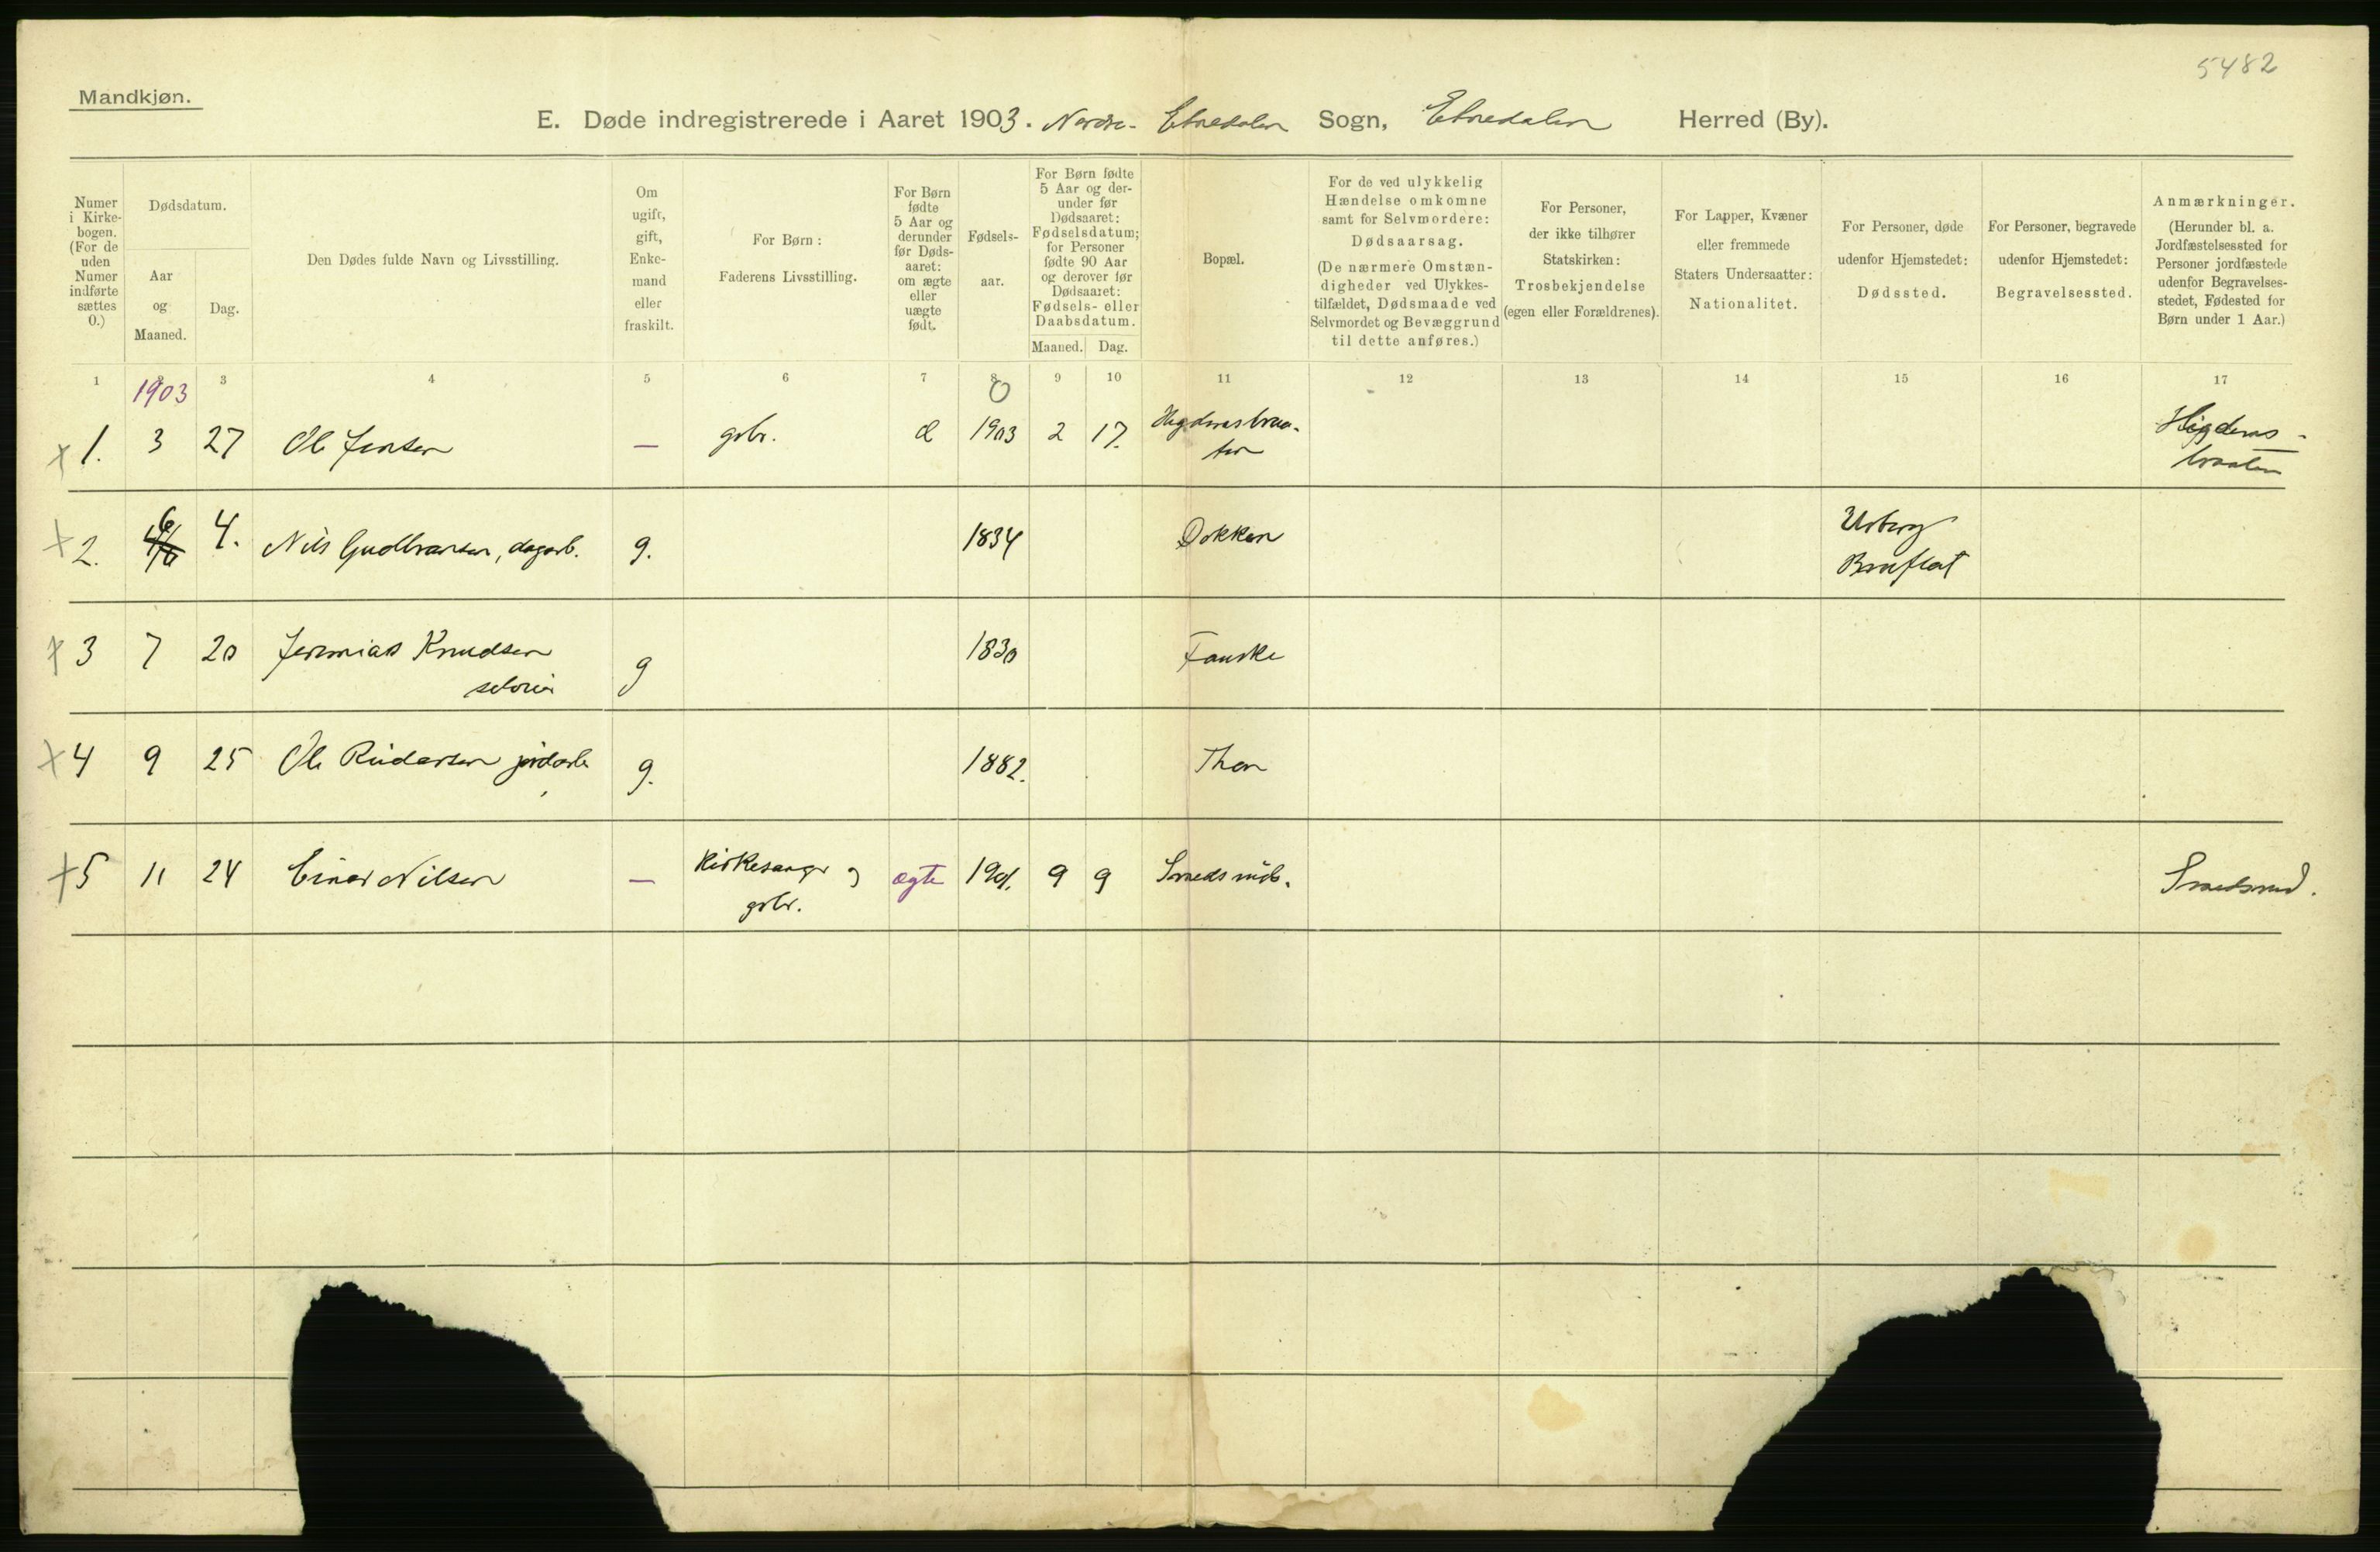 5482
Mandkjøn.
E. Døde indregistrerede i Aaret 1903. Nordre Etnedalen Sogn, Etnedalen Herred (By).
Numer i Kirkebogen. (For de uden Numer indførte sættes 0.)
Dødsdatum.
Aar og Maaned.
Dag.
Den Dødes fulde Navn og Livsstilling.
Om ugift, gift, Enkemand eller fraskilt.
For Børn: Faderens Livsstilling.
For Børn fødte 5 Aar og derunder før Dødsaaret: om ægte eller uægte født.
Fødselsaar.
For Børn fødte 5 Aar og derunder før Dødsaaret: Fødselsdatum; for Personer fødte 90 Aar og derover før Dødsaaret: Fødsels- eller Daabsdatum.
Maaned. Dag.
Bopæl.
For de ved ulykkelig Hændelse omkomne samt for Selvmordere: Dødsaarsag. (De nærmere Omstændigheder ved Ulykkestilfældet, Dødsmaade ved Selvmordet og Bevæggrund til dette anføres.)
For Personer, der ikke tilhører Statskirken: Trosbekjendelse (egen eller Forældrenes).
For Lapper, Kvæner eller fremmede Staters Undersaatter: Nationalitet.
For Personer, døde udenfor Hjemstedet: Dødssted.
For Personer, begravede udenfor Hjemstedet: Begravelsessted.
Anmærkninger. (Herunder bl. a. Jordfæstelsessted for Personer jordfæstede udenfor Begravelsesstedet, Fødested for Børn under 1 Aar.)
1 2 3 4 5 6 7 8 9 10 11 12 13 14 15 16 17
1903 0
1. 3 27 Ole Jensen — gbr. æ 1903 2 17.
2. 6 4. Nils Gudbransen, dagarb. g. 1834 Dokken
3 7 20 Jeremias Knudsen g 1830 Fauske
4 9 25 Ole Reidarsen jordarb g. 1882. Thon
5 11 24 Einar Nilsen — Kirkesanger og gbr. ægte 1901. 9 9 Smedsrud.